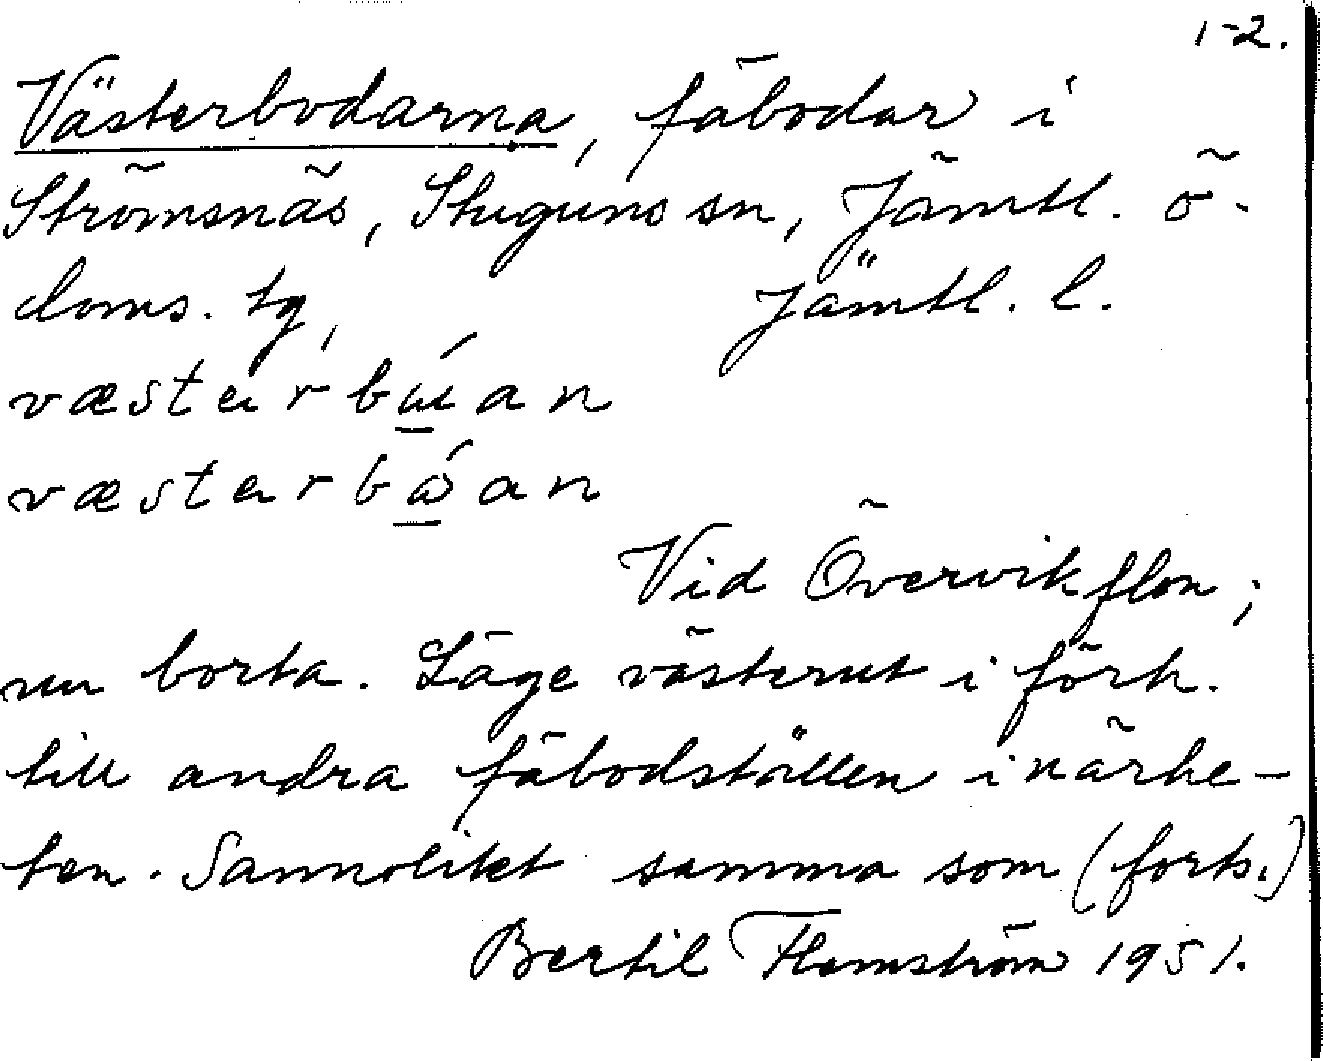 1-2.
Västerbodarna, fäbodar i
Strömsnäs, Stuguns sn, Jämtl. ö.
doms. tg, Jämtl. l.
væstar an
væstar an
Vid Övervikflon;
nu borta. Läge västerut i förh.
till andra fäbodställen i närhe-
ten. Sannolikt samma som (forts.)
Bertil Flemström 1951.